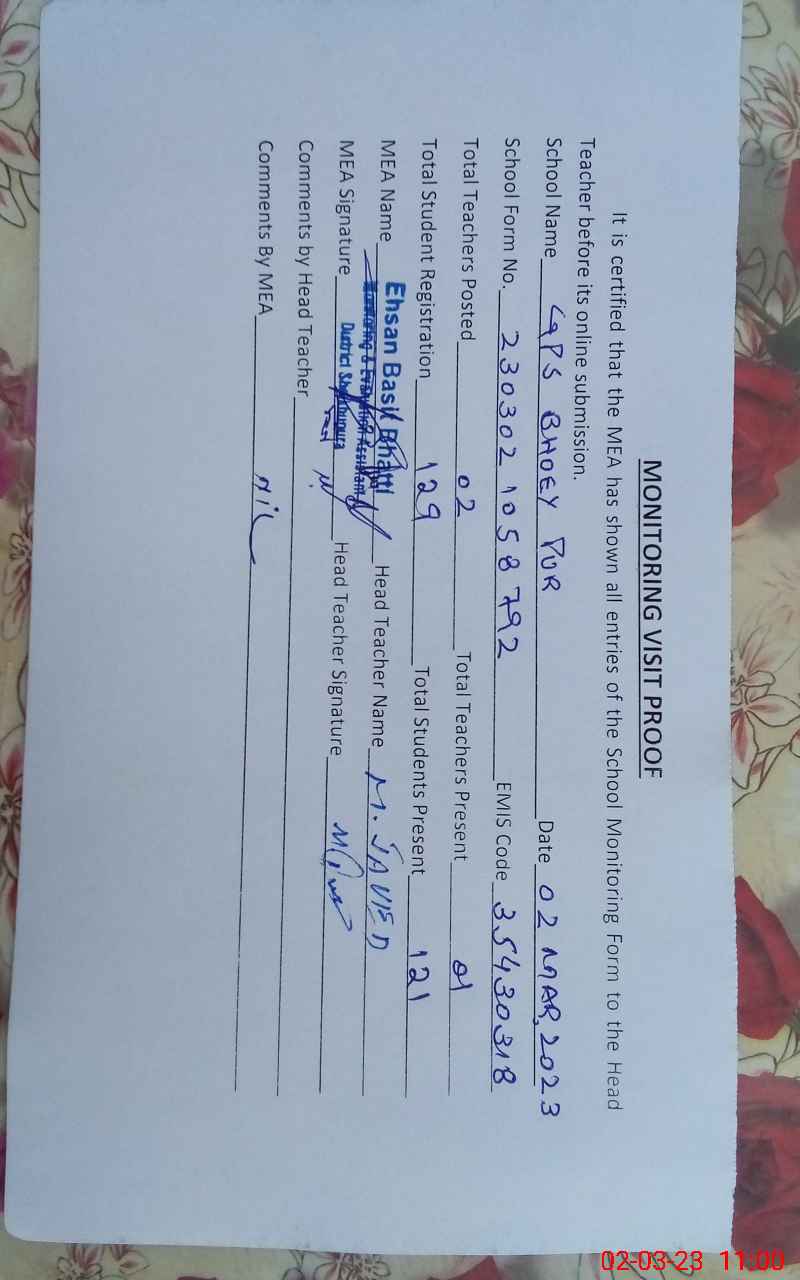 MONITORING VISIT PROOF
It is certified that the MEA has shown all entries of the School Monitoring Form to the Head
Teacher before its online submission.
School Name GPS BHOEY PUR Date 02 MAR, 2023
School Form No. 230302 1058792 EMIS Code 35430318
Total Teachers Posted 02 Total Teachers Present 01
Total Student Registration 129 Total Students Present 121
MEA Name Ehsan Basil Bhatti Head Teacher Name M. JAVIED
Monitoring & Evaluation Assistant
District Sheikhupura
MEA Signature Head Teacher Signature
Comments by Head Teacher
Comments By MEA Nil
02-03-23 11:00